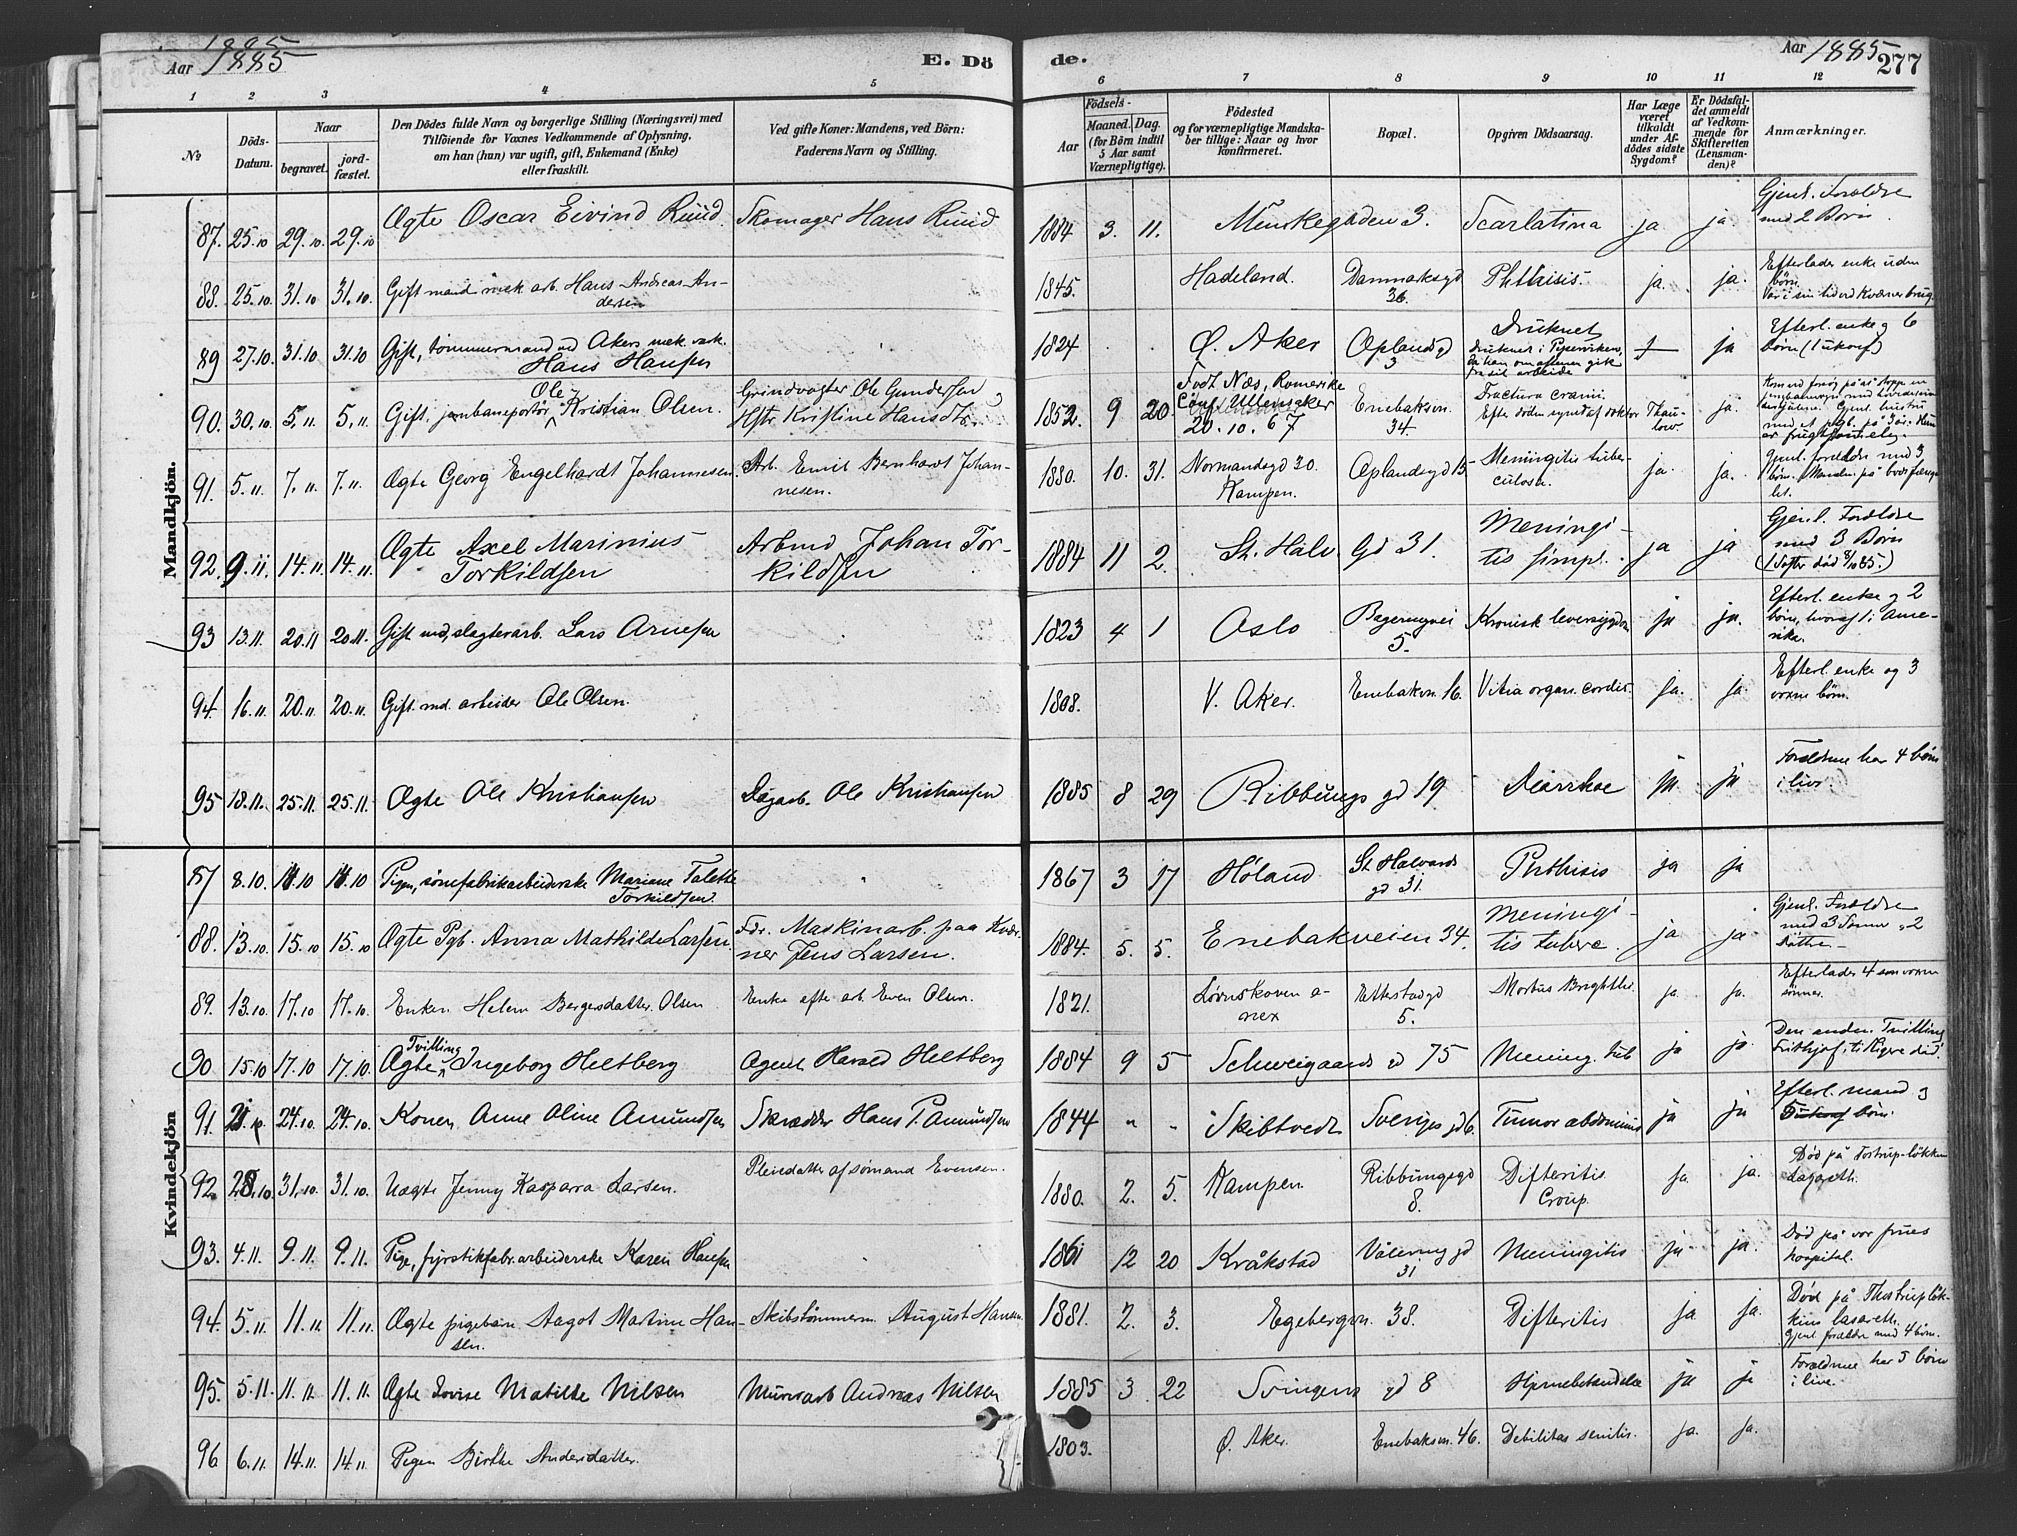 Aar 1885
E. Dö
de.
Aar 1885
277
1 2 3 4 5 6 7 8 9 10 11 12
№
Döds-
Datum.
Naar
begravet.
jord-
fæstet.
Den Dödes fulde Navn og borgerlige Stilling (Næringsvei) med
Tilföiende for Voxnes Vedkommende af Oplysning,
om han (hun) var ugift, gift, Enkemand (Enke)
eller fraskilt.
Ved gifte Koner: Mandens, ved Börn:
Faderens Navn og Stilling.
Födsels-
Aar
Maaned. Dag.
(for Börn indtil
5 Aar samt
Værnepligtige).
Födested
og for værnepligtige Mandska-
ber tillige: Naar og hvor
konfirmeret.
Bopæl.
Opgiven Dödsaarsag.
Har Læge
været
tilkaldt
under Af-
dödes sidste
Sygdom?
Er Dödsfal-
det anmeldt
af Vedkom-
mende for
Skifteretten
(Lensman-
den)?
Anmærkninger.
Mandkjön.
87. 25.10 29.10. 29.10 Ægte Oscar Eivind Ruud. Skomager Hans Ruud 1884 3. 11. Menskegaden 3. Scarlatina ja ja. Gjenl. Forældre
med 2 Børn.
88. 25.10. 31.10 31.10. Gift mand mek arb. Hans Andreas An-
dersen 1845. Hadeland. Danmarksgd
36. Phthisis. ja. ja. Efterlader enke uden
børn.
Var i sin tid ved Kværner brug.
89 27.10. 31.10. 31.10 Gift, tømmermand ved Akers mek. værk.
Hans Hansen 1824 Ø. Aker Oplandsgd
3 Druknet
druknet i Pipervikene,
da han om aftenen gik
fra sit arbeide ja Efterl. enke og 6
børn (1 ukonf)
90. 30.10. 5.11. 5.11. Gift. jernbaneportør Ole Kristian Olsen. Grindvogter Ole Gundersen og
Hstr Kristine Hansdtr. 1852. 9 20. Født Næs, Romerike
Conf. Ullensaker
20.10.67 Enebaksvn.
34. Fractura cranii.
Efter døden synet af doktor Thau-
low ja.
91. 5.11. 7.11. 7.11. Ægte Georg Engelhardt Johannesen. Arb. Emil Bernhardt Johan-
nesen. 1880. 10. 31. Normandsgd 30.
Kampen. Oplandsgd 15 Meningitis tuber-
culosa. ja. ja. Gjenl. forældre med 3
børn. Manden på bodsfæng-
let.
92. 9.11. 14.11. 14.11. Ægte Axel Marinius
Torkildsen Arbmd Johan Tor-
kildsen 1884 11 2. St. Halv Gd 31. Meningi-
tis simpl. ja ja Gjenl. Forældre
med 3 Børn
(1 Søster død 8/10 85.)
93 13.11. 20.11 20.11. Gift md, slagterarb. Lars Arnesen 1823 4 1 Oslo Bageringvei
5. Kronisk leversygdom ja ja. Efterl. enke og 2
børn, hvoraf 1 i Ame-
rika.
94. 16.11. 20.11. 20.11. Gift md. arbeider Ole Olsen. 1808. V. Aker. Enebaksvn. 16. Vitia organ. cordis. ja. ja. Efterl. enke og 3
voxne børn.
95 18.11. 25.11. 25.11. Ægte Ole Kristiansen Dagarb. Ole Kristiansen 1885 8 29 Ribbungs gd 19 Diarrhoe ja ja Forældrene har 4 børn
i live.
Kvindekjön
87 8.10. 14.10 14.10 Pigen, sømfabrikarbeiderske Mariane Talette
Torkildsen. 1867 3 17 Høland St. Halvards
gd 31. Phthisis ja ja
88. 13.10. 15.10 15.10 Ægte Pgb. Anna Mathilde Larsen. Fdr. Maskinarb. paa Kvær-
ner Jens Larsen. 1884. 5. 5. Enebakveien 34. Meningi-
tis tuberc. ja ja Gjenl. Forældre
med 3 Sønner og 2
Døttre.
89. 13.10. 17.10 17.10. Enken Helene Bergesdatter Olsen Enke efter arb. Even Olsen. 1821. Lørnskoven a-
nex Etterstadgd
5. Morbus Brightii. ja. ja. Efterlader 4 som voxne
sønner.
90 15.10 17.10 17.10. Ægte Tvilling Ingeborg Heltberg Agent Harald Heltberg 1884 9 5 Schweigaards gd 75 Mening. tub ja ja. Den anden Tvilling
Frithjof, tidligere død.
91. 21.10. 24.10. 24.10. Konen Anne Oline Amundsen Skrædder Hans P. Amundsen 1844 " " Skibtvedt Sveriges gd 6. Tumor abdominis ja ja Efterl. mand og
børn.
92. 28.10. 31.10. 31.10. Uægte Jenny Kasparra Larsen. Pleiedatter af sømand Evensen. 1880. 2. 5. Kampen Ribbungsgd
8. Difteritis
Croup. ja. ja. Død på Tostrup-løkken
Lazareth.
93. 4.11. 9.11. 9.11. Pige, fyrstikfabr.arbeiderske Karen Hansen 1861 12 20 Kråkstad Vålereng gd
31 Meningitis ja ja. Død på vor frues
hospital.
94. 5.11. 11.11. 11.11. Ægte pigebarn Aagot Martine Han-
sen. Skibstømmerm. August Hansen 1881. 2. 3. Egebergvn. 38. Difteritis ja ja. Død på Thostrupløk-
kens lasareth.
Gjenl. forældre med 4 børn.
95. 5.11. 11.11. 11.11. Ægte Lovise Matilde Nilsen Murerarb Andreas Nilsen 1885 3 22 Svingens gd 8 Hjernebetændelse ja ja Forældrene har 5 børn
i live.
96 6.11. 14.11. 14.11. Pigen Birthe Andersdatter. 1803. Ø. Aker. Enebaksvn. 46. Debilitas senilis. ja. ja.